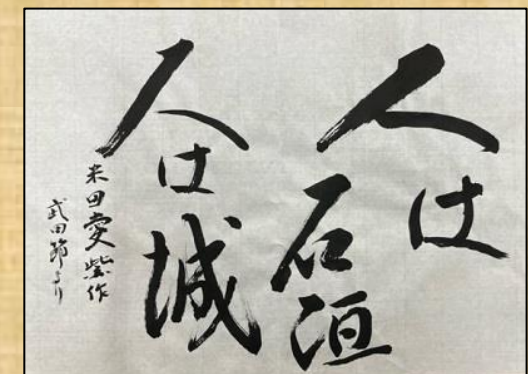 人は
石垣
人は
城
米田愛紫作
武田節より